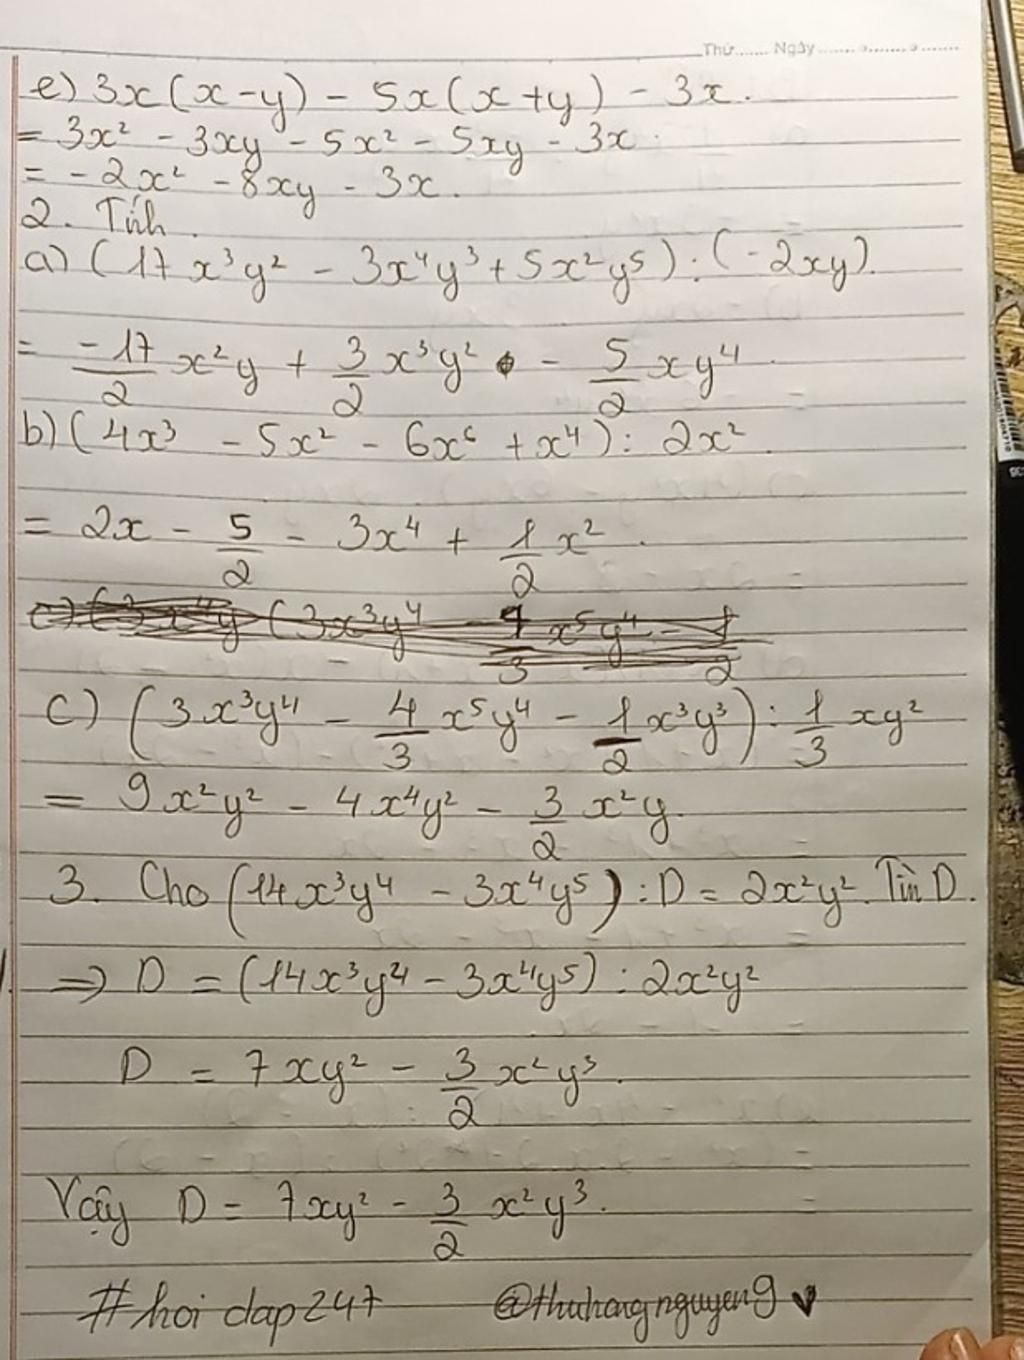 Thứ....... Ngày ....................
e) 3x(x-y) - 5x(x+y) - 3x.
= 3x² - 3xy - 5x² - 5xy - 3x.
= -2x² - 8xy - 3x.
2. Tính.
a) (17x³y² - 3x⁴y³ + 5x²y⁵) : (-2xy).
= -17/2 x²y + 3/2 x³y² - 5/2 xy⁴
b) (4x³ - 5x² - 6x⁶ + x⁴) : 2x².
= 2x - 5/2 - 3x⁴ + 1/2 x².
c) (3x³y⁴ - 4/3 x⁵y⁴ - 1/2 x³y³) : 1/3 xy²
= 9x²y² - 4x⁴y² - 3/2 x²y.
3. Cho (14x³y⁴ - 3x⁴y⁵) : D = 2x²y². Tìn D.
=> D = (14x³y⁴ - 3x⁴y⁵) : 2x²y²
D = 7xy² - 3/2 x²y³.
Vậy D = 7xy² - 3/2 x²y³.
#hoi dap247 @thuhangnguyen9